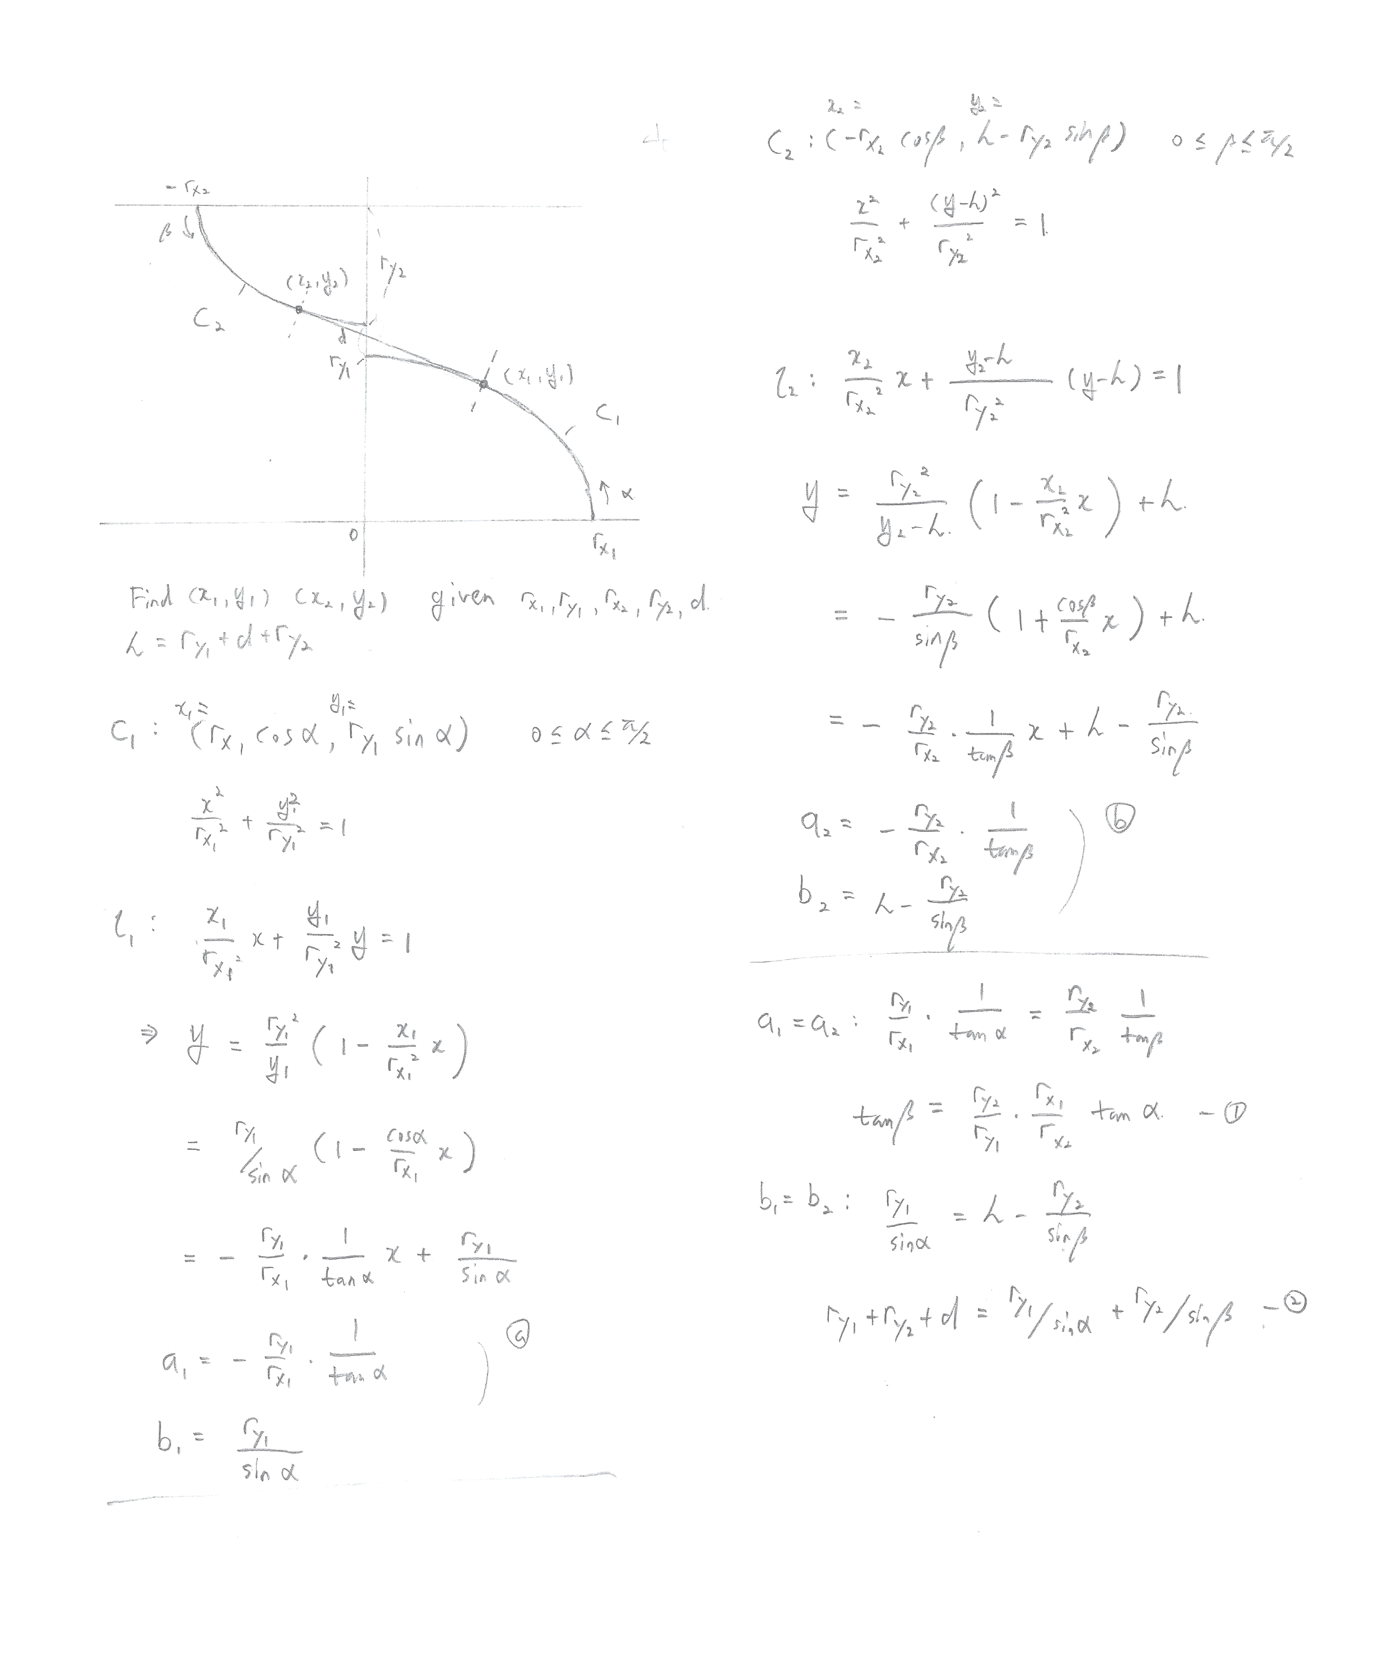 - r_x₂
β
r_y₂
(x₂, y₂)
C₂
d
r_y₁
(x₁, y₁)
C₁
α
0
r_x₁
Find (x₁, y₁) (x₂, y₂) given r_x₁, r_y₁, r_x₂, r_y₂, d.
h = r_y₁ + d + r_y₂
x₁ = y₁ =
C₁ : (r_x₁ cos α, r_y₁ sin α) 0 ≤ α ≤ π/2
x²/r_x₁² + y₁²/r_y₁² = 1
l₁ : x₁/r_x₁² x + y₁/r_y₁² y = 1
⇒ y = r_y₁²/y₁ (1 - x₁/r_x₁² x)
= r_y₁/sin α (1 - cos α/r_x₁ x)
= - r_y₁/r_x₁ · 1/tan α x + r_y₁/sin α
a₁ = - r_y₁/r_x₁ · 1/tan α ⓐ
b₁ = r_y₁/sin α
x₂ = y₂ =
C₂ : (-r_x₂ cos β, h - r_y₂ sin β) 0 ≤ β ≤ π/2
x²/r_x₂² + (y-h)²/r_y₂² = 1.
l₂ : x₂/r_x₂² x + y₂-h/r_y₂² (y-h) = 1
y = r_y₂²/y₂-h. (1 - x₂/r_x₂² x) + h.
= - r_y₂/sin β (1 + cos β/r_x₂ x) + h.
= - r_y₂/r_x₂ · 1/tan β x + h - r_y₂/sin β
a₂ = - r_y₂/r_x₂ · 1/tan β ⓑ
b₂ = h - r_y₂/sin β
a₁ = a₂ : r_y₁/r_x₁ · 1/tan α = r_y₂/r_x₂ 1/tan β
tan β = r_y₂/r_y₁ · r_x₁/r_x₂ tan α. - ①
b₁ = b₂ : r_y₁/sin α = h - r_y₂/sin β
r_y₁ + r_y₂ + d = r_y₁/sin α + r_y₂/sin β - ②